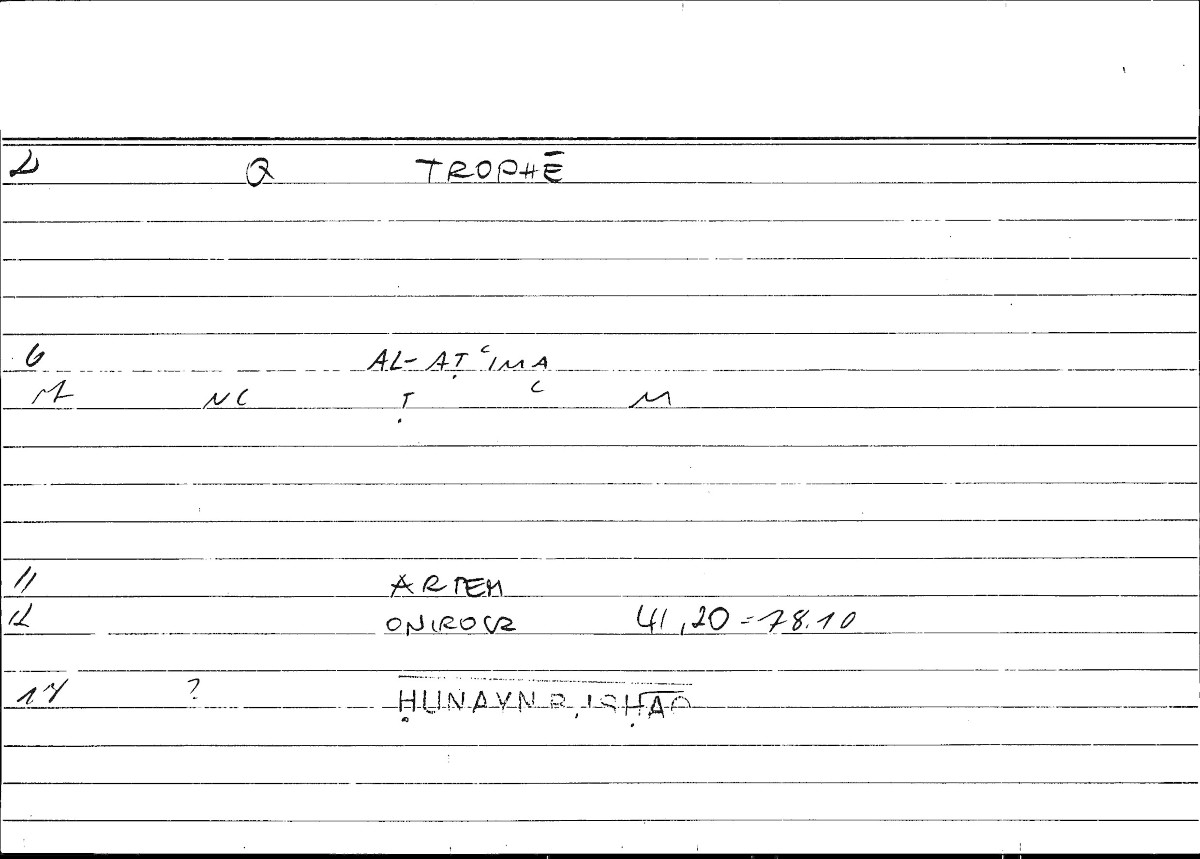 2 Q TROPHĒ
6 AL-AṬʿIMA
NC Ṭ ʿ M
11 ARTEM
12 ONIROCR 41,20 = 78.10
17 ? ḤUNAYN B. ISḤĀQ